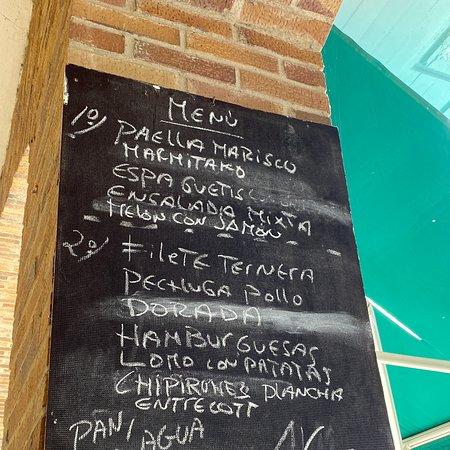 MENÚ
1º/ PAELLA MARISCO
MARMITAKO
ESPAGUETIS
ENSALADIA MIXTA
MELON CON JAMON
2º/ FILETE TERNERA
PECHUGA POLLO
DORADA
HAMBURGUESAS
LOMO CON PATATAS
CHIPIRONES PLANCHA
ENTRECOTT
PAN/
AGUA